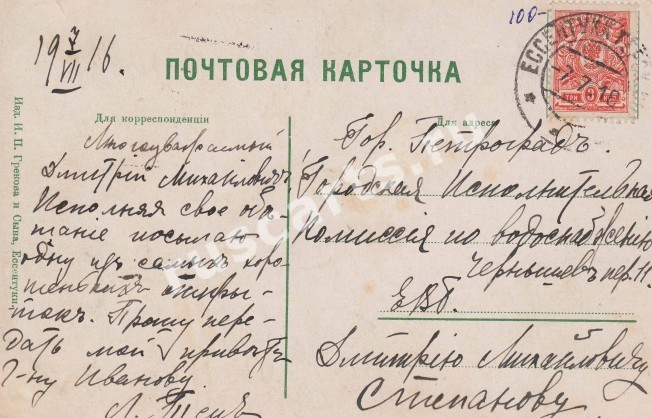 100-
19 7/VII 16.
ПОЧТОВАЯ КАРТОЧКА
ЕССЕНТУКИ
7.7.16
ТРИ
Для корреспонденціи
Для адреса
Изд. И. П. Грекова и Сына, Ессентуки.
Многоуважаемый
Дмитрій Михайловичъ
Исполняя свое обѣ-
щаніе посылаю
одну изъ самыхъ хоро-
шенькихъ откры-
токъ. Прошу пере-
дать мой привѣтъ
Г-ну Иванову
Гор. Петроградъ.
Городская Исполнительная
Комиссія по водоснабженію
Чернышевъ пер. 11.
ЕВБ.
Дмитрію Михайловичу
Степанову
ruscards.ru